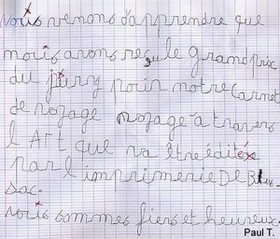 Nous venons d'apprendre que
nous avons reçu le Grand prix
du jury pour notre Carnet
de voyage voyage à travers
l'Art que va être édité
par l'imprimerie DE Bus-
sac.
nous sommes fiers et heureux.
Paul T.